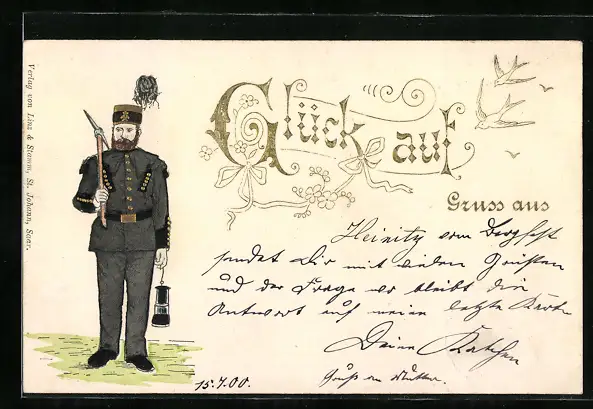 Verlag von Linz & Stamm, St. Johann, Saar.
Glück auf
Gruss aus
Heinitz vom
sendet Dir mit vielen Grüssen
und der Frage wo bleibt die
Antwort auf meine letzte Karte
Deine Käthchen
Gruß an Mutter.
15.7.00.